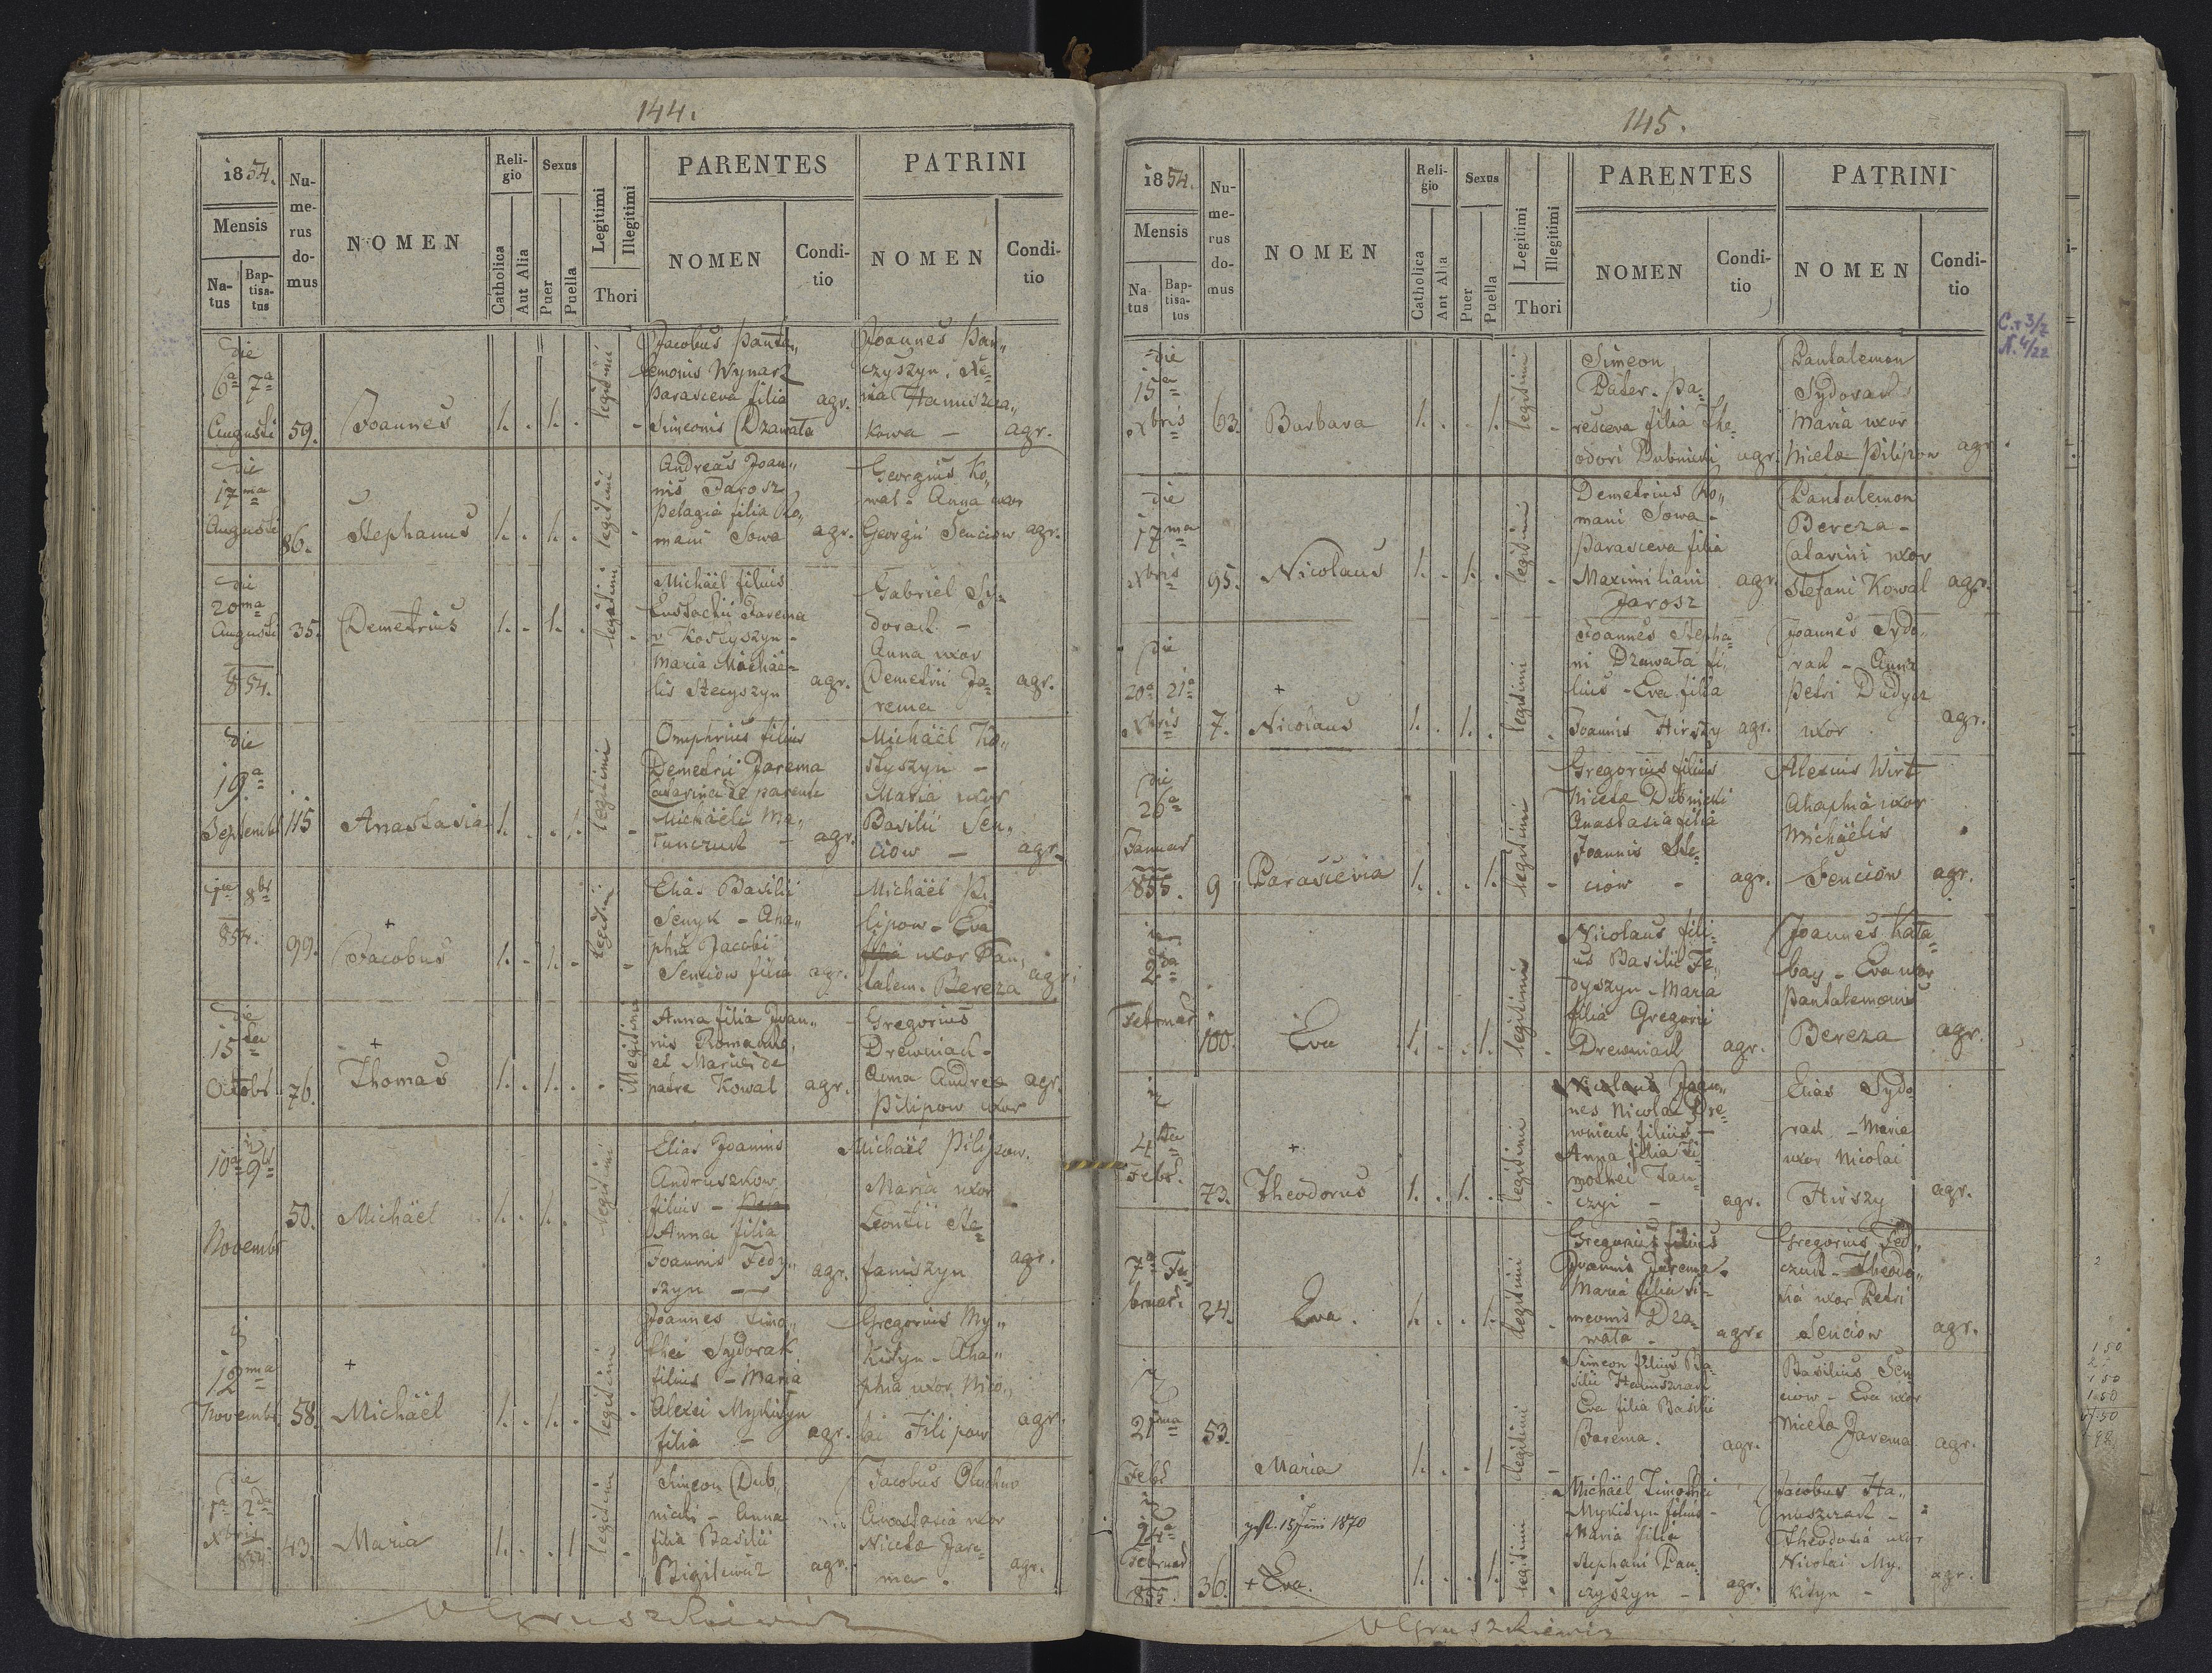 144.
1854.
Mensis
Natus
Baptisatus
Numerus domus
NOMEN
Religio
Catholica
Aut Alia
Sexus
Puer
Puella
Legitimi
Illegitimi
Thori
PARENTES
NOMEN
Conditio
PATRINI
NOMEN
Conditio
die
6a 7a
Augusti
59.
Joannes
1. . 1. .
legitimi
Jacobus Panta„
lemonis Wynarz
Parasceva filia
Simeonis Dzawata
agr.
Joannes Pan„
czyszyn.
Kowa —
agr.
die
17ma
Augusti
86.
Stephanus
1. . 1. .
legitimi
Andreas Joan„
nis Jarosz
Pelagia filia Ro„
mani Sowa
agr.
Georgius Ko„
wal - Anna uxor
Georgii Senciow
agr.
die
20ma
Augusti
854.
35.
Demetrius
1. . 1. .
legitimi
Michaël filius
Eustachii Jarema
Kostyszyn -
Maria Michaë=
lis Stecyszyn
agr.
Gabriel Sy=
dorack -
Anna uxor
Demetrii Ja=
rema
agr.
die
19a
Septembr
115
Anastasia
1. . . 1.
legitimi
Onuphrius filius
Demetrii Jarema
Catarina de parente
Michäele Ma„
agr.
Michaël Ko„
styszyn —
Maria uxor
Basilii Sen„
ciow —
agr.
1a 8br
854.
99.
+
Jacobus
1. . 1. .
legitimi
Elias Basilii
Senyk - Aha„
phia Jacobi
Senciow filia
agr.
Michaël Pi„
lipow - Eva
uxor Pan„
talem. Bereza
agr.
die
15ta
Octobr
76.
+
Thomas
1. . 1. .
Illegitimi
Anna filia Joan„
nis
et Maria de
patre Kowal
agr.
Gregorius
Drewniack -
Anna Andreae
Pilipow uxor
agr.
10a 9br
Novembr
50.
Michäel
1. . 1. .
legitimi
Elias Joannis
Andruszkow
filius -
Anna filia
Joannis Fedy„
szyn —
agr.
Michaël Pilipow.
Maria uxor
Leontii Ste=
faniszyn
agr.
12ma
Novembr
58.
+
Michaël
1. . 1. .
legitimi
Joannes Timo„
thei Sydorak
filius - Maria
Alexii Mykityn
filia —
agr.
Gregorius My„
kityn - Aha„
phia uxor Nico„
lai Filipow
agr.
die
1a 2da
Xbris
854.
43.
Maria
1. . . 1
legitimi
Simeon Dub„
nicki - Anna
filia Basilii
agr.
Jacobus
Anastasia uxor
Nicetae Jare=
ma.
agr.
145.
1854.
Mensis
Natus
Baptisatus
Numerus domus
NOMEN
Religio
Catholica
Aut Alia
Sexus
Puer
Puella
Legitimi
Illegitimi
Thori
PARENTES
NOMEN
Conditio
PATRINI
NOMEN
Conditio
die
15a
Xbris
63.
Barbara
1. . . 1.
legitimi
Simeon
Pa=
resceva filia The=
odori Dubnicki
agr.
Pantalemon
Sydorack
Maria uxor
Nicetae Pilipow
agr.
die
17ma
Xbris
95.
Nicolaus
1. . 1. .
legitimi
Demetrius Ro„
mani Sowa -
Parasceva filia
Maximiliani
Jarosz
agr.
Pantalemon
Bereza -
Catarini uxor
Stefani Kowal
agr.
die
20a 21a
Xbris
7.
+
Nicolaus
1. . 1. .
legitimi
Joannes Stepha=
ni Dzawata fi„
lius - Eva filia
Joannis Hirszy
agr.
Joannes Sydo„
rack - Anna
Petri Dudycz
uxor
agr.
die
26a
Januar
855.
9
Parascevia
1. . . 1.
legitimi
Gregorius filius
Nicetae Dubnicki
Anastasia filia
Joannis Se=
ciow -
agr.
Alexius Wirt
Ahaphia uxor
Michäelis
Senciow
agr.
2da
Februar
100.
Eva
1. . . 1.
legitimi
Nicolaus fili=
us Basilii Fe„
dyszyn - Maria
filia Gregorii
Drewniack
agr.
Joannes Kata=
bay - Eva uxor
Pantalemonis
Bereza
agr.
4ta
Febr.
73.
+
Theodorus
1. . 1. .
legitimi
Nicolaus Joan„
nes Nicolai Dre=
wniack filius -
Anna filia Ti=
mothei Pan=
czyi -
agr.
Elias Sydo
rack - Maria
uxor Nicolai
Hirszy
agr.
7a Fe
bruar.
24.
Eva.
1. . . 1.
legitimi
Gregorius filius
Joannis Jarema.
Maria filia Si=
meonis Dza=
wata -
agr.
Gregorius Fed„
czuk - Theodo„
sia uxor Petri
Senciow
agr.
21ma
Febr
53.
Maria
1. . . 1
legitimi
Simeon filius Ba=
silii Hanuszczack
Eva filia Basilii
Jarema.
agr.
Basilius Sen
ciow - Eva uxor
Nicetae
Jarema
agr.
24a
Februar
855.
36.
gest. 15 Juni 1870
+ Eva.
1. . . 1.
legitimi
Michäel Timothei
Mykityn filius -
Maria filia
Stephani Pan„
czyszyn -
agr.
Jacobus Ha„
nuszczack -
Theodosia uxor
Nicolai My„
kityn -
agr.